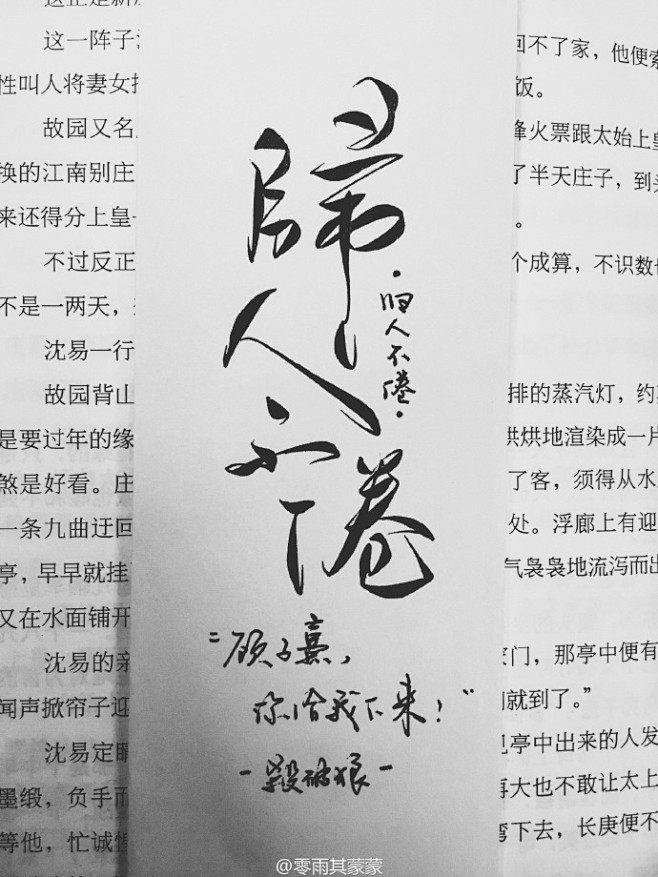 这一阵子
性叫人将妻女
故园又名
换的江南别庄
来还得分上皇
不过反正
不是一两天，
沈易一行
故园背山
是要过年的缘
煞是好看。庄
一条九曲迂回
亭，早早就挂
又在水面铺开
沈易的亲
闻声掀帘子迎
沈易定睛
墨缎，负手而
等他，忙诚惶
歸
人
不
倦
·归人不倦·
“顾子熹，
你给我下来！”
-殺破狼-
回不了家，他便索
饭。
烽火票跟太始上皇
了半天庄子，到头
。
个成算，不识数也
排的蒸汽灯，约莫
烘烘地渲染成一片
了客，须得从水
处。浮廊上有迎
气袅袅地流泻而出
家门，那亭中便有
就到了。”
见亭中出来的人发
再大也不敢让太上
弯下去，长庚便不
@零雨其蒙蒙